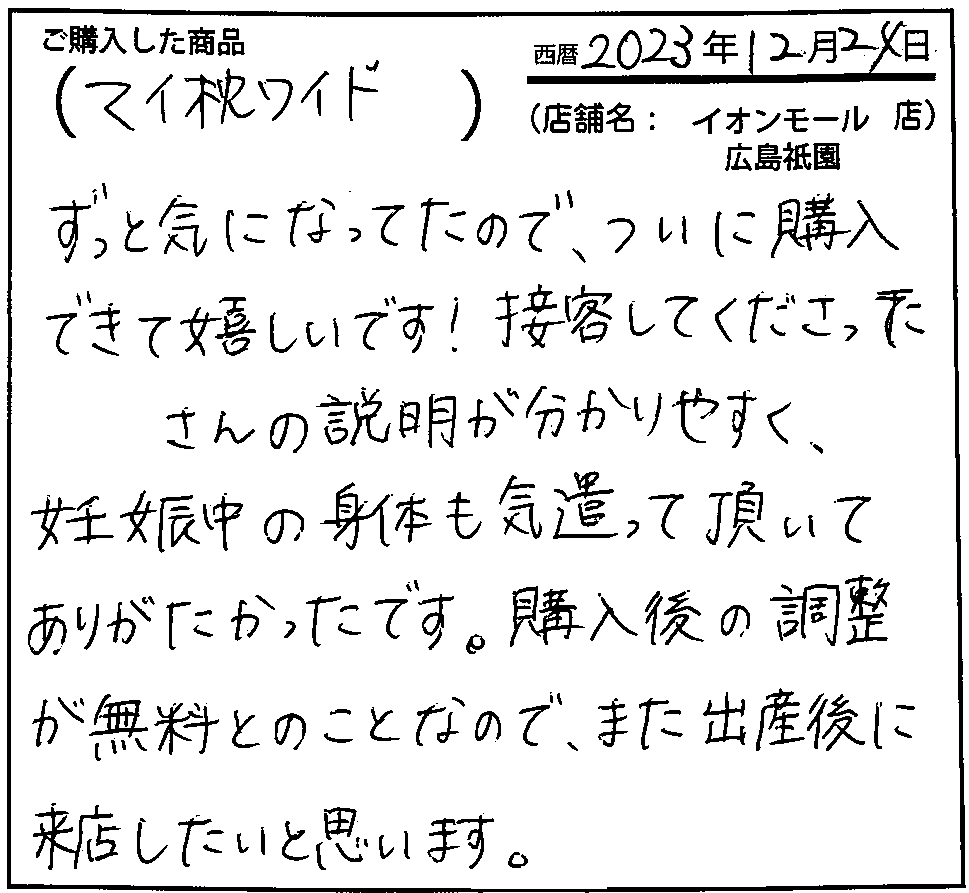 ご購入した商品
(マイ枕ワイド )
西暦2023年12月24日
(店舗名： イオンモール 店)
広島祇園
ずっと気になってたので、ついに購入
できて嬉しいです！接客してくださった
さんの説明が分かりやすく、
妊娠中の身体も気遣って頂いて
ありがたかったです。購入後の調整
が無料とのことなので、また出産後に
来店したいと思います。